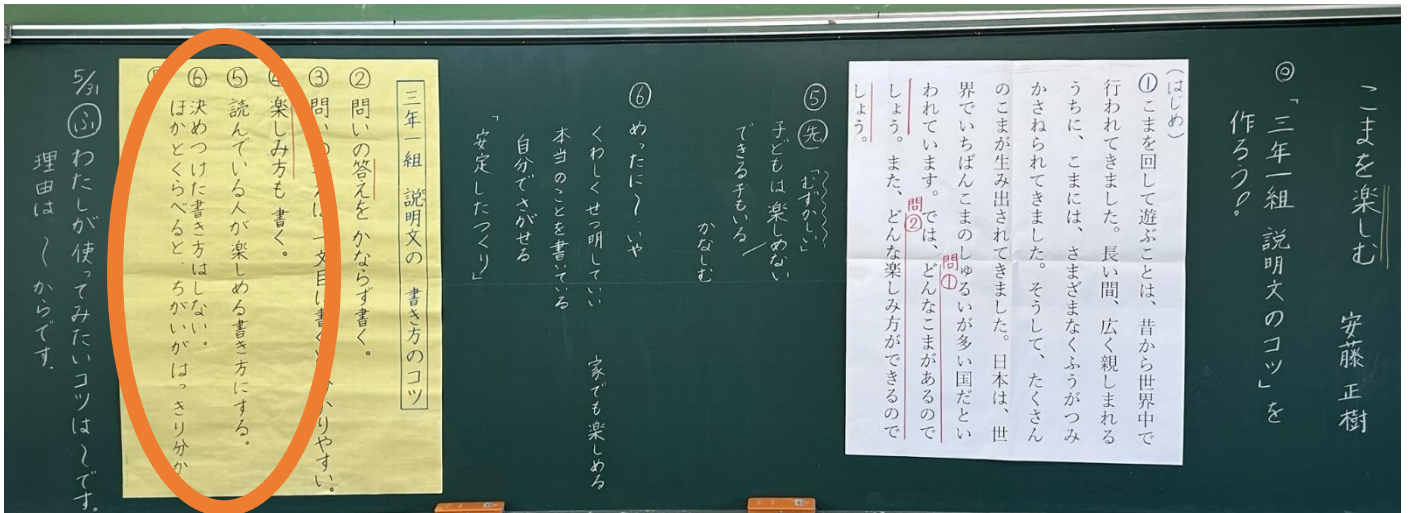 こまを楽しむ　安藤正樹
◎「三年一組　説明文のコツ」を
作ろう!
(はじめ)
①こまを回して遊ぶことは、昔から世界中で
行われてきました。長い間、広く親しまれる
うちに、こまには、さまざまなくふうがつみ
かさねられてきました。そうして、たくさん
のこまが生み出されてきました。日本は、世
界でいちばんこまのしゅるいが多い国だとい
われています。では、どんなこまがあるので
問①
しょう。また、どんな楽しみ方ができるので
問②
しょう。
⑤ 先「むずかしい」
子どもは楽しめない
できる子もいる
かなしむ
⑥ めったに〜いや
くわしくせつ明していい　家でも楽しめる
本当のことを書いている
自分でさがせる
「安定したつくり」
三年一組　説明文の　書き方のコツ
②問いの答えをかならず書く。
③問い 一文目に書く りやすい。
④楽しみ方も書く。
⑤読んでいる人が楽しめる書き方にする。
⑥決めつけた書き方はしない。
ほかとくらべると、ちがいがはっきり分か
5/31 ふ わたしが使ってみたいコツは〜です。
理由は〜からです。